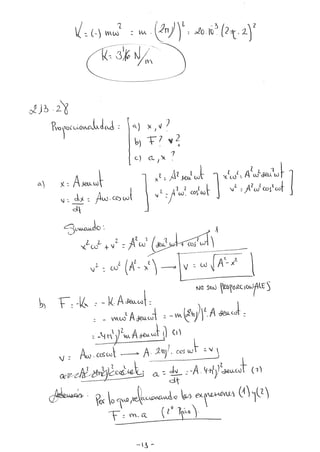 K = (-) mω² = m · (2πf)² = 20·10⁻³ (2π·2)²
K = 3'16 N/m
2J3.28
Proporcionalidad : a) x, v?
b) F? v?
c) a, x?
a) x = A senωt
v = dx/dt = Aω·cosωt
x² = A² sen²ωt
v² = A²ω² cos²ωt
x²ω² = A²ω² sen²ωt
v² = A²ω² cos²ωt
Sumando:
x²ω² + v² = A²ω² (sen²ωt + cos²ωt) 1
v² = ω² (A² - x²) → v = ω √A² - x²
NO SON PROPORCIONALES
b) F = -Kx = -K A senωt =
= - mω² A senωt = - m(2πf)² A senωt =
= -4π²f² m A senωt (1)
v = Aω cosωt → A·2πf·cosωt = v
a = dv/dt = -A·4π²f² senωt (2)
Además: Por lo que, relacionando las expresiones (1) y (2)
F = m·a (2ª Ppio)
-13-